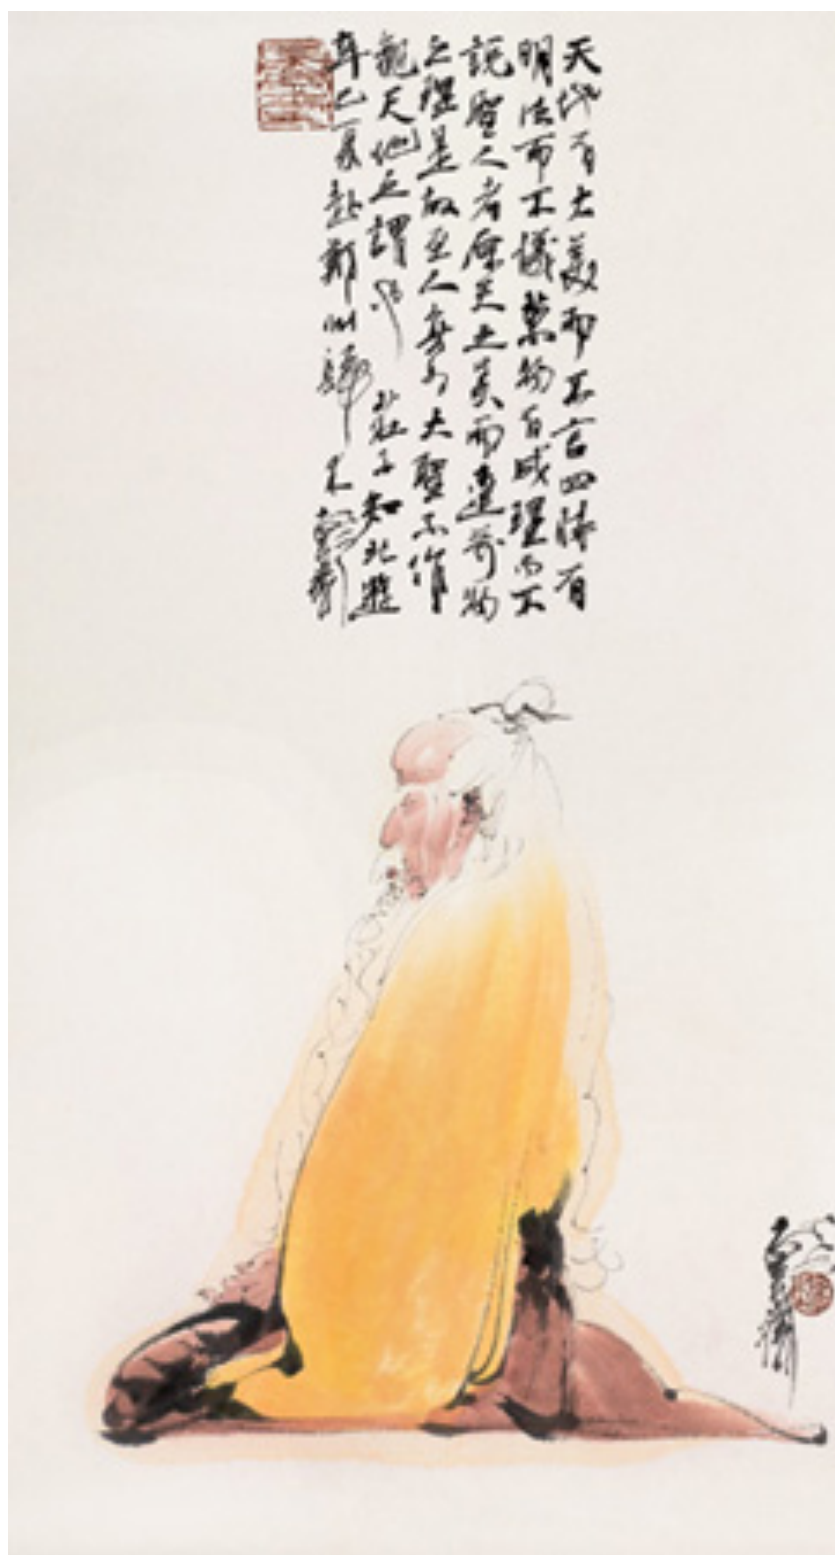 天地有大美而不言四時有
明法而不議萬物有成理而不
說聖人者原天之美而達萬物
之理是故至人無為大聖不作
觀天地之謂也 莊子知北遊
辛巳夏赴鄭州歸來